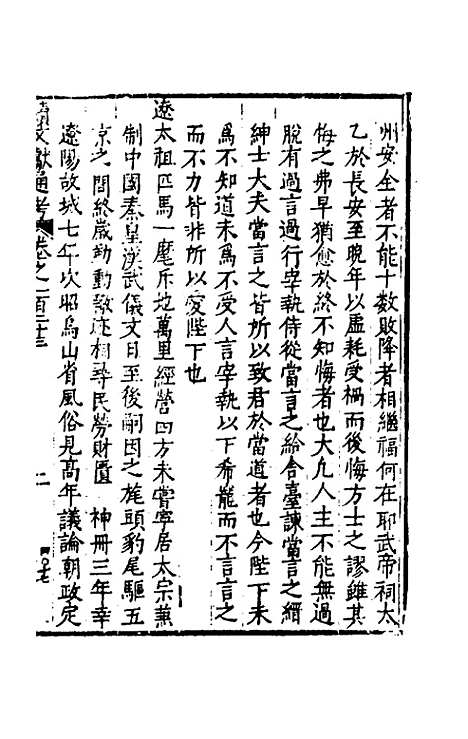 州安全者不能十數敗降者相繼福何在耶武帝祠太
乙於長安至晚年以虛耗受禍而後悔方士之謬雖其
悔之弗早猶愈於終不知悔者也大凡人主不能無過
脫有過言過行宰執侍從當言之給舍臺諫當言之縉
紳士大夫當言之皆所以致君於當道者也今陛下未
爲不知道未爲不受人言宰執以下希寵而不言言之
而不力皆非所以愛陛下也
遼太祖匹馬一麾斥地萬里經營四方未嘗寧居太宗兼
制中國秦皇漢武儀文日至後嗣因之旄頭豹尾驅五
京之間終歲勤動轍迹相尋民勞財匱 神冊三年幸
遼陽故城七年次昭烏山省風俗見高年議論朝政定
文獻通考 卷之一百二十三 二